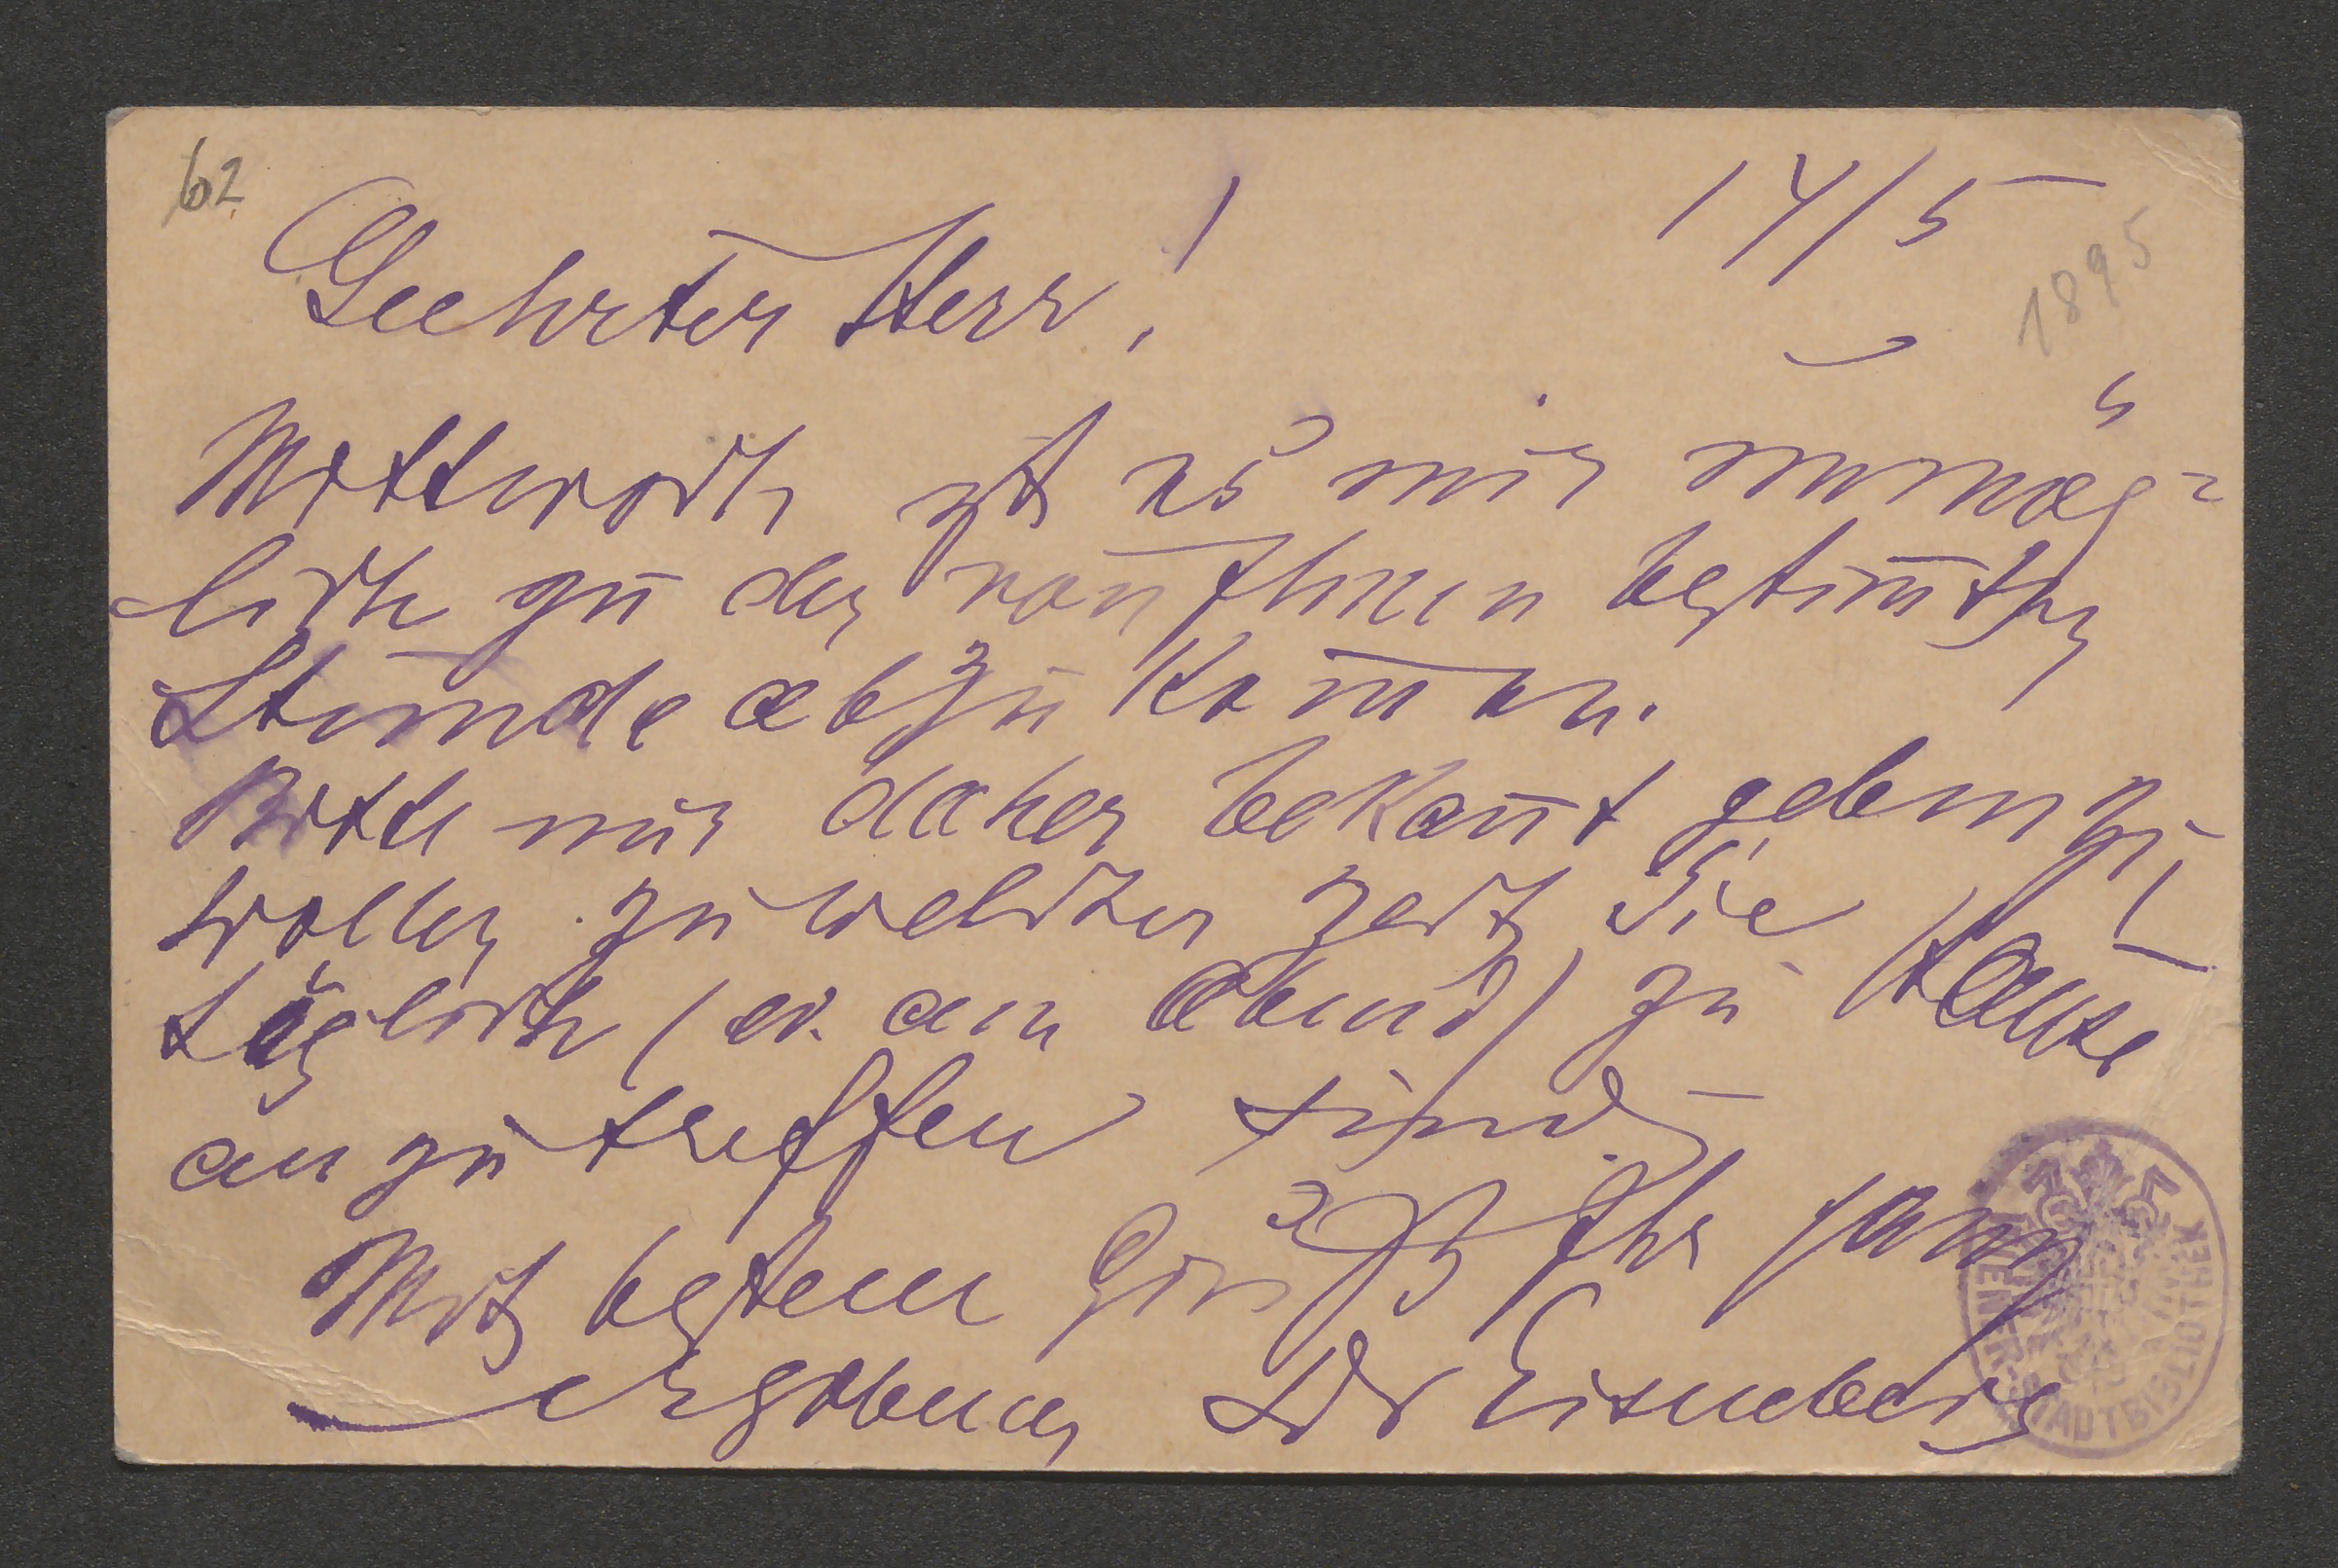 62
14/5
1895
Geehrter Herr!
Mittwoch ist es mir unmög=
lich zu der von Ihnen bestim̅ten
Stunde abzukom̅en.
Bitte mir daher bekan̅t geben zu
wollen zu welcher Zeit Sie
täglich (ev. am Abend) zu Hause
anzutreffen sind.
Mit bestem Gruß Ihr ganz
ergebener Dr Eisenberg
WIENER STADTBIBLIOTHEK